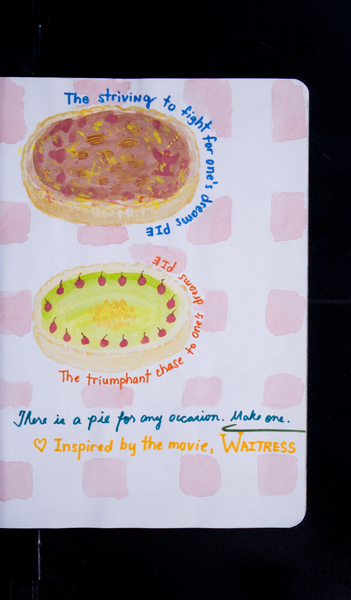 The striving to fight for one's dreams PIE
The triumphant chase to one's dreams PIE
There is a pie for any occasion. Make one.
♡ Inspired by the movie, WAITRESS